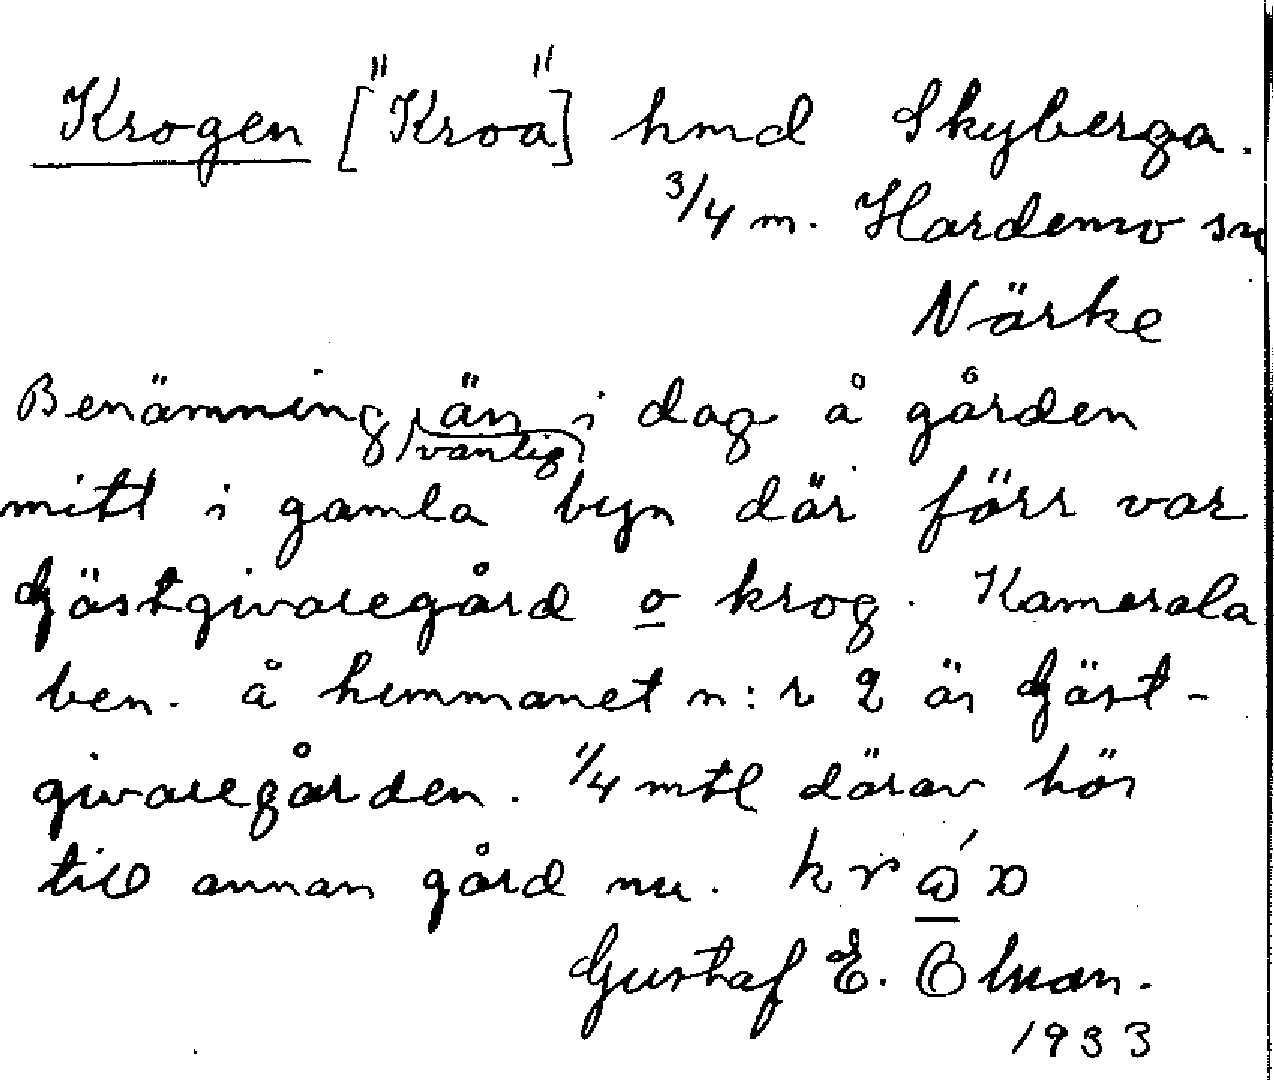 Krogen ["Kroa"] hmd Skyberga.
3/4 m. Hardemo sn
Närke
Benämning än i dag å gården
vanlig
mitt i gamla byn där förr var
Gästgivaregård o krog. Kamerala
ben. å hemmanet n:r 2 är Gäst-
givaregården. 1/4 mtl därav hör
till annan gård nu.
Gustaf E.
1933